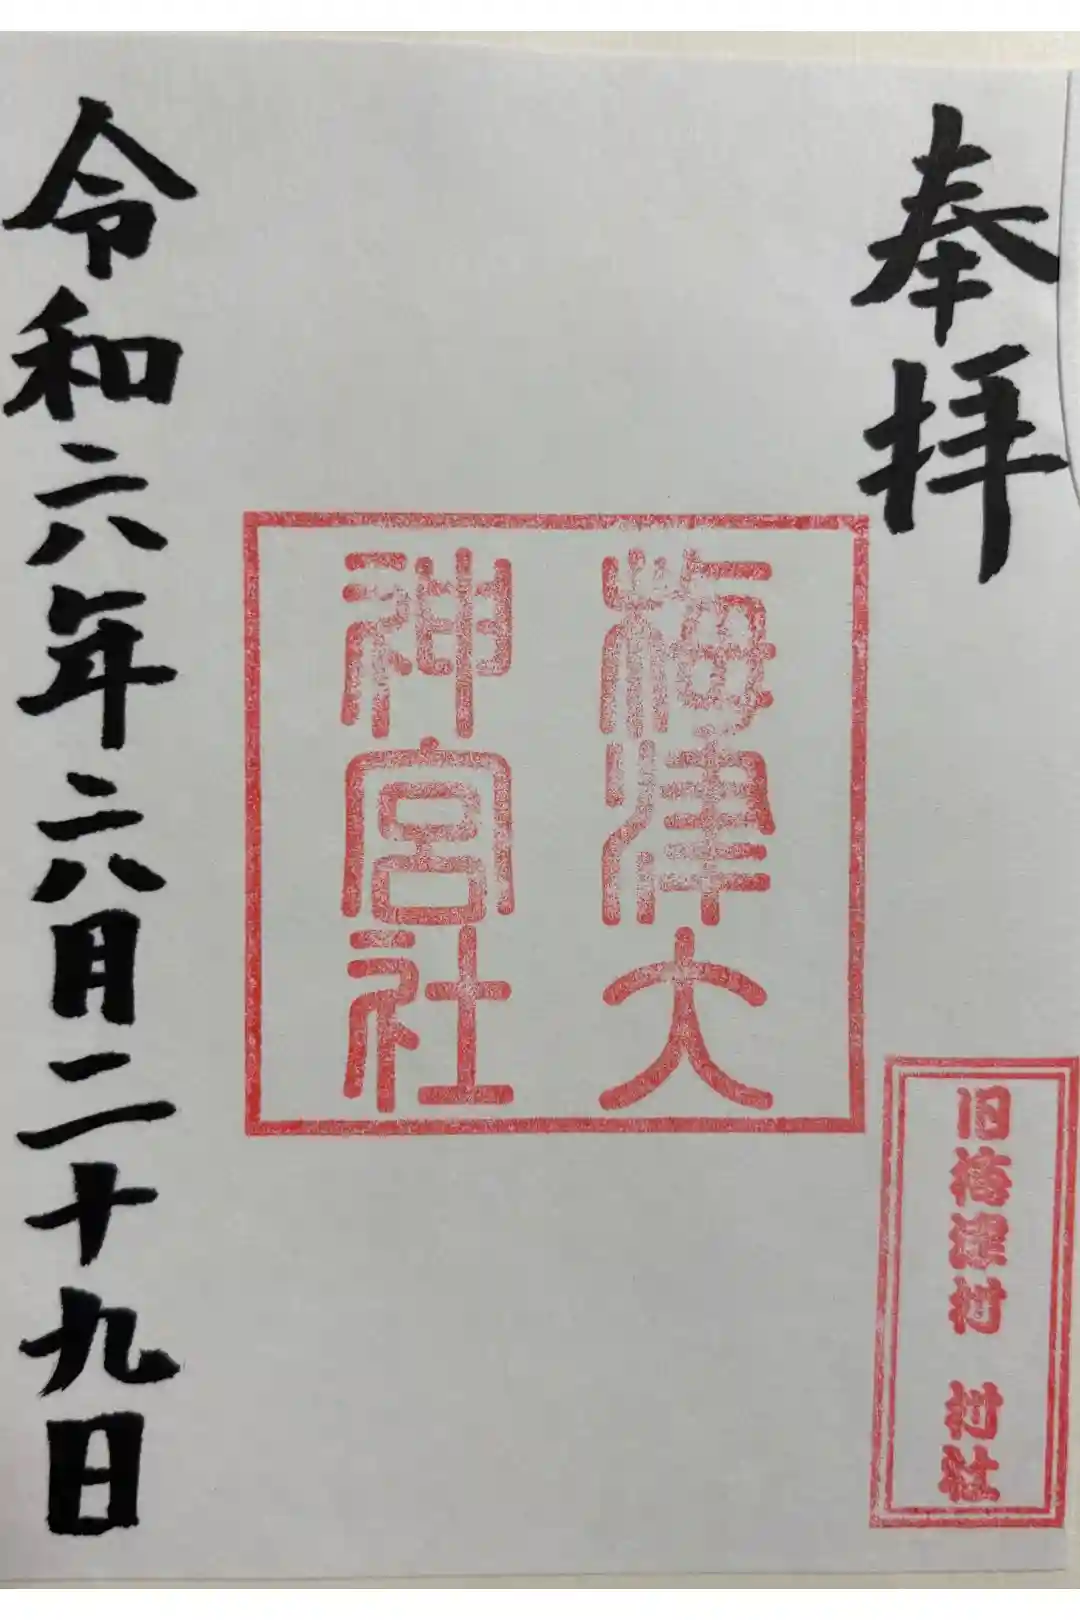 奉拝
梅津大
神宮社
旧梅津村　村社
令和六年六月二十九日